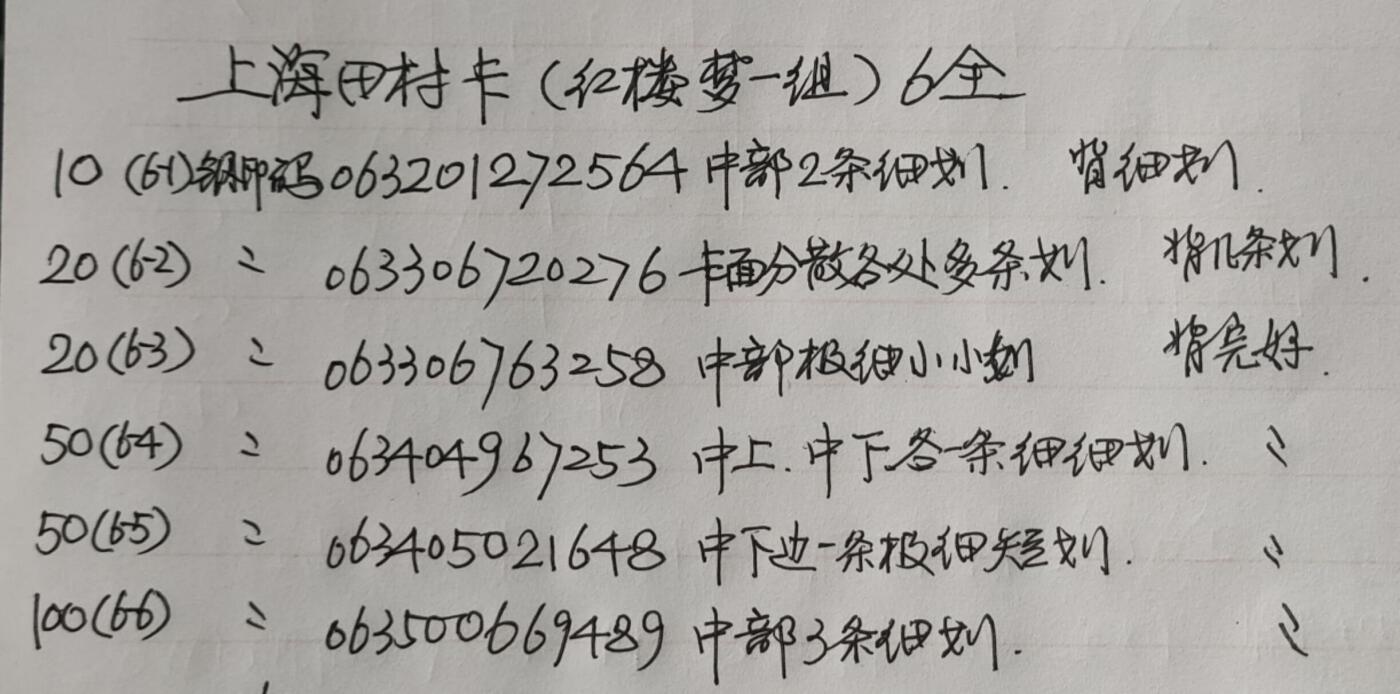 上海田村卡（红楼梦一组）6全
10（6-1）钢印码063201272564中部2条细划. 背细划.
20（6-2） 〃 063306720276卡面分散各处多条划. 背几条划.
20（6-3） 〃 063306763258中部极细小小划 背完好.
50（6-4） 〃 063404967253中上.中下各一条细细划. 〃
50（6-5） 〃 063405021648中下边一条极细短划. 〃
100（6-6） 〃 063500669489中部3条细划. 〃